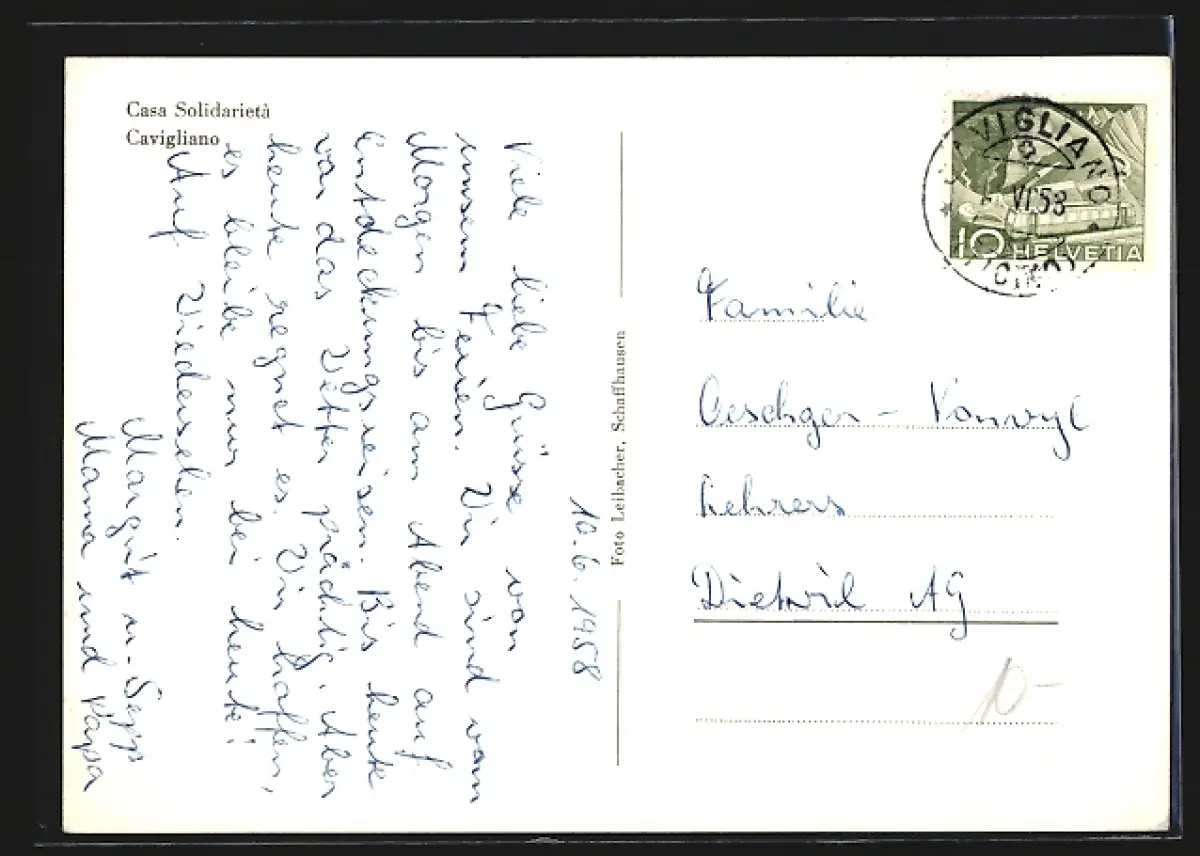 Casa Solidarietà
Cavigliano
10.6.1958
Viele liebe Grüsse von
unsern Ferien. Wir sind vom
Morgen bis am Abend auf
Entdeckungsreisen. Bis heute
war das Wetter prächtig. Aber
heute regnet es. Wir hoffen,
es bleibe nur bei heute!
Auf Wiedersehen.
Margrit u. Sepp
Mama und Papa
Foto Leibacher, Schaffhausen
CAVIGLIANO
VI 58
(TICINO)
10 HELVETIA
Familie
Oeschger - Vonwyl
Lehrers
Dietwil AG
10-